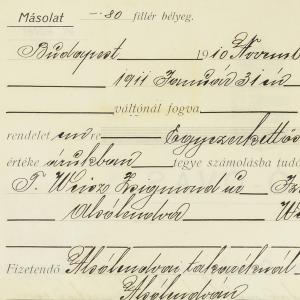 Másolat -·80 fillér bélyeg.
Budapest 1910 Novemb
1911 Január 31 én
váltónál fogva
rendelet emre Egyezerkettős
értéke árukban tegye számolásba tudó
T. Weisz Zsigmond úr
Alsólendva We
Fizetendő Alsólendvai takaréknál
Alsólendván